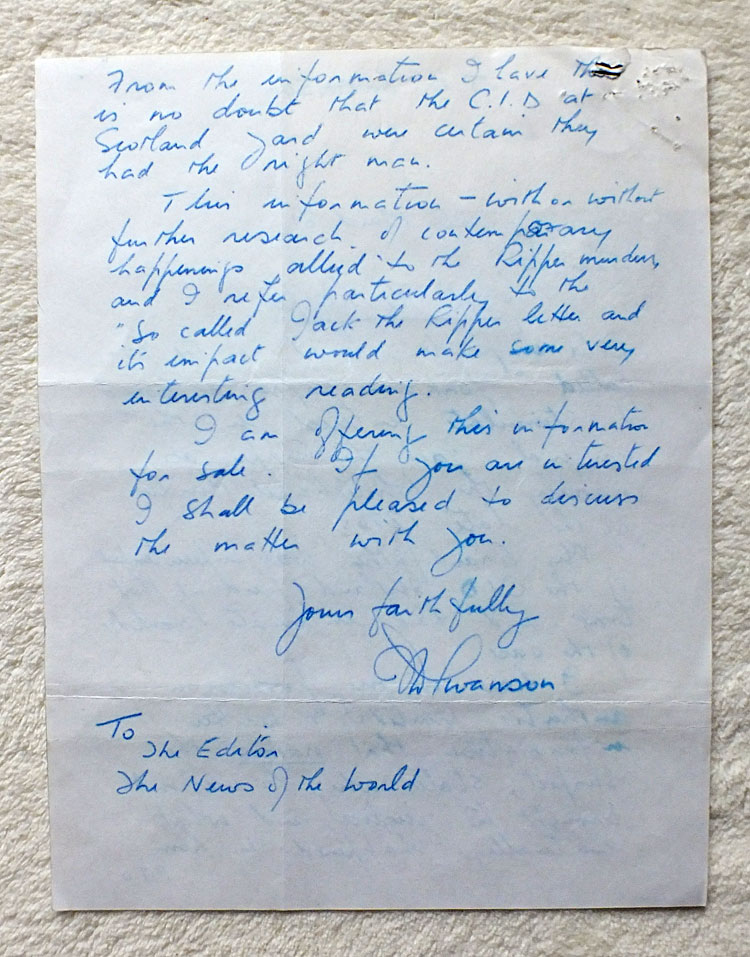 From the information I have
is no doubt that the C.I.D at
Scotland Yard were certain they
had the right man.
This information – with or without
further research of contemporary
happenings allied to the Ripper murders,
and I refer particularly to the
"So called Jack the Ripper letter and
it's impact would make some very
interesting reading.
I am offering this information
for sale. If you are interested
I shall be pleased to discuss
the matter with you.
Yours faithfully
Swanson
To
The Editor
The News of the World